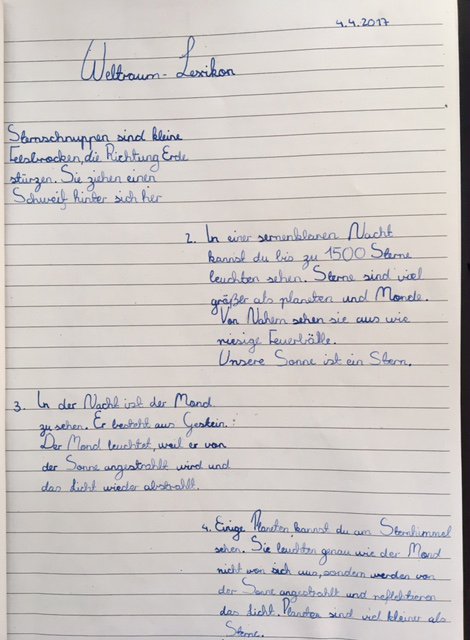 4.4.2017
Weltraum-Lexikon
Sternschnuppen sind kleine
Felsbrocken, die Richtung Erde
stürzen. Sie ziehen einen
Schweif hinter sich her
2. In einer sernenklaren Nacht
kannst du bis zu 1500 Sterne
leuchten sehen. Sterne sind viel
größer als planeten und Monde.
Von Nahem sehen sie aus wie
riesige Feuerbälle.
Unsere Sonne ist ein Stern.
3. In der Nacht ist der Mond
zu sehen. Er besteht aus Gestein.:
Der Mond leuchtet, weil er von
der Sonne angestrahlt wird und
das Licht wieder abstrahlt.
4. Einige Planeten kannst du am Sternhimmel
sehen. Sie leuchten genau wie der Mond
nicht von sich aus, sondern werden von
der Sonne angestrahlt und reflektieren
das Licht. Planeten sind viel kleiner als
Sterne.